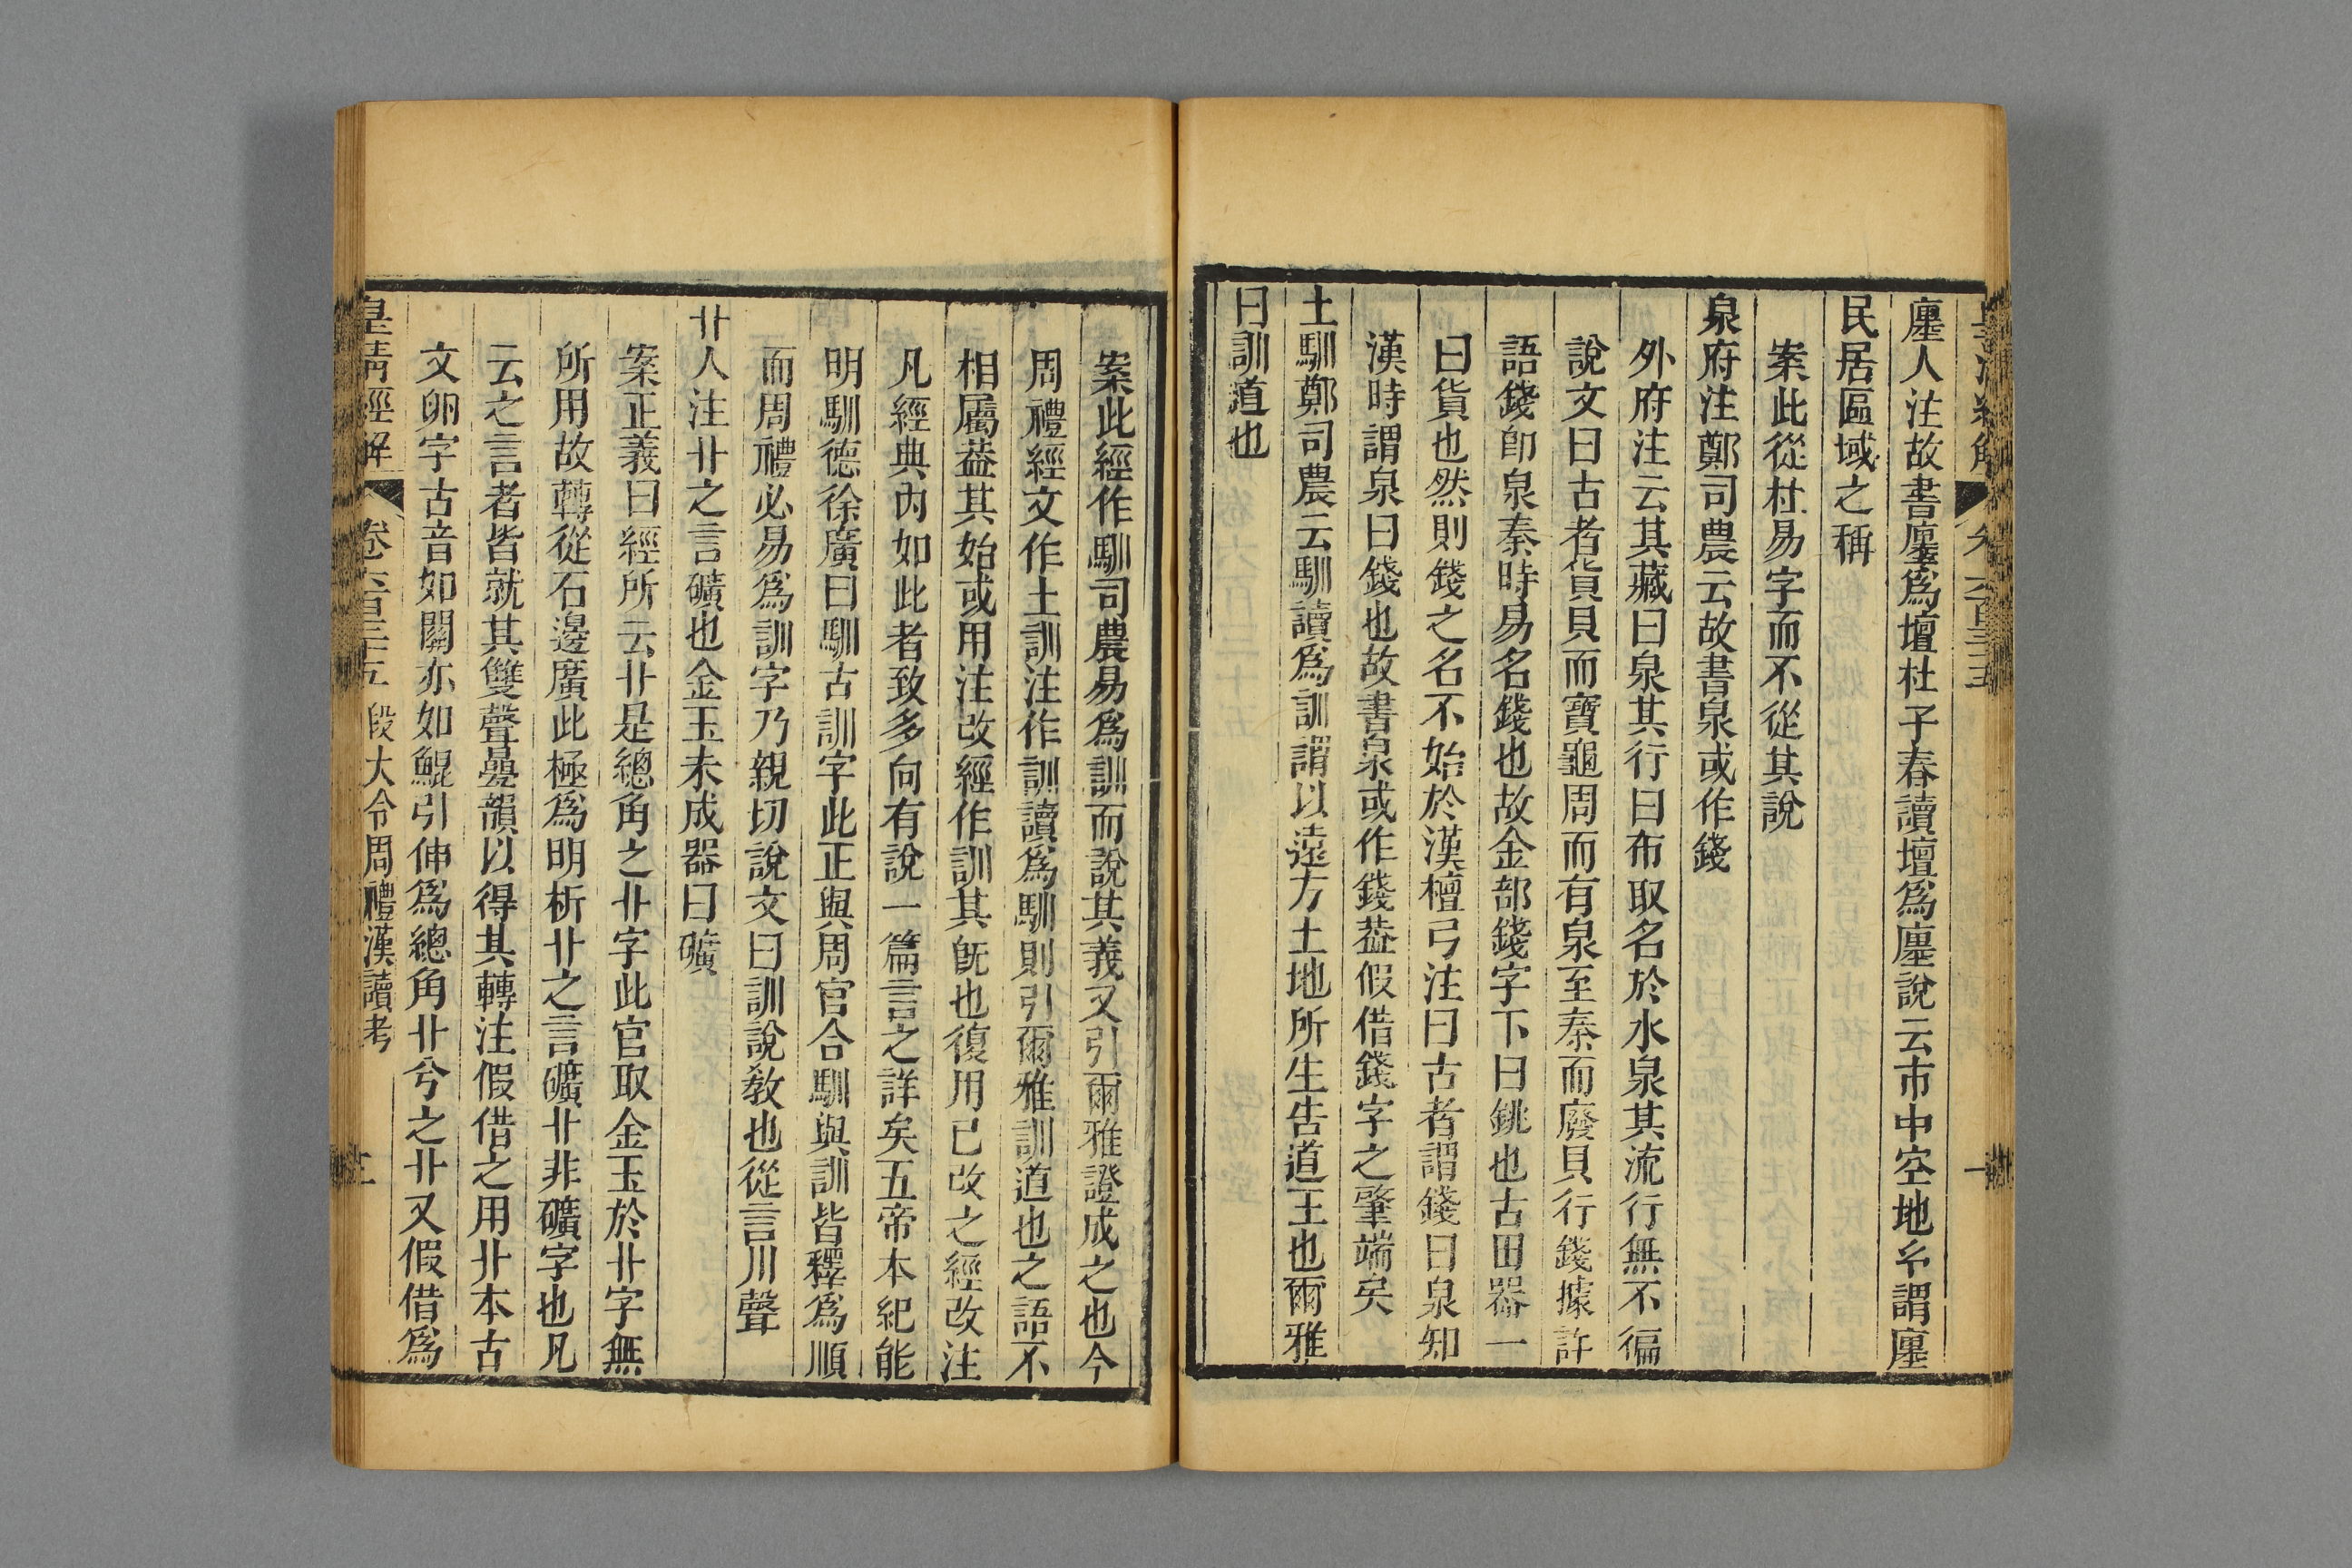 廛人注故書廛爲壇杜子春讀壇爲廛說云市中空地𤣥謂廛
民居區域之稱
案此從杜易字而不從其說
泉府注鄭司農云故書泉或作錢
外府注云其藏曰泉其行曰布取名於水泉其流行無不徧
說文曰古者貨貝而寶龜周而有泉至秦而廢貝行錢據許
語錢卽泉秦時易名錢也故金部錢字下曰銚也古田器一
曰貨也然則錢之名不始於漢檀弓注曰古者謂錢曰泉知
漢時謂泉曰錢也故書泉或作錢葢假借錢字之肇端矣
土馴鄭司農云馴讀爲訓謂以遠方土地所生告道王也爾雅
曰訓道也
案此經作馴司農易爲訓而說其義又引爾雅證成之也今
周禮經文作土訓注作訓讀爲馴則引爾雅訓道也之語不
相屬葢其始或用注改經作訓其旣也復用已改之經改注
凡經典內如此者致多向有說一篇言之詳矣五帝本紀能
明馴德徐廣曰馴古訓字此正與周官合馴與訓皆釋爲順
而周禮必易爲訓字乃親切說文曰訓說敎也從言川聲
卝人注卝之言礦也金玉未成器曰礦
案正義曰經所云卝是總角之卝字此官取金玉於卝字無
所用故轉從石邊廣此極爲明析卝之言礦卝非礦字也凡
云之言者皆就其雙聲曡韻以得其轉注假借之用卝本古
文卵字古音如關亦如鯤引伸爲總角卝兮之卝又假借爲
皇淸經解 卷六百三十五 段大令周禮漢讀考